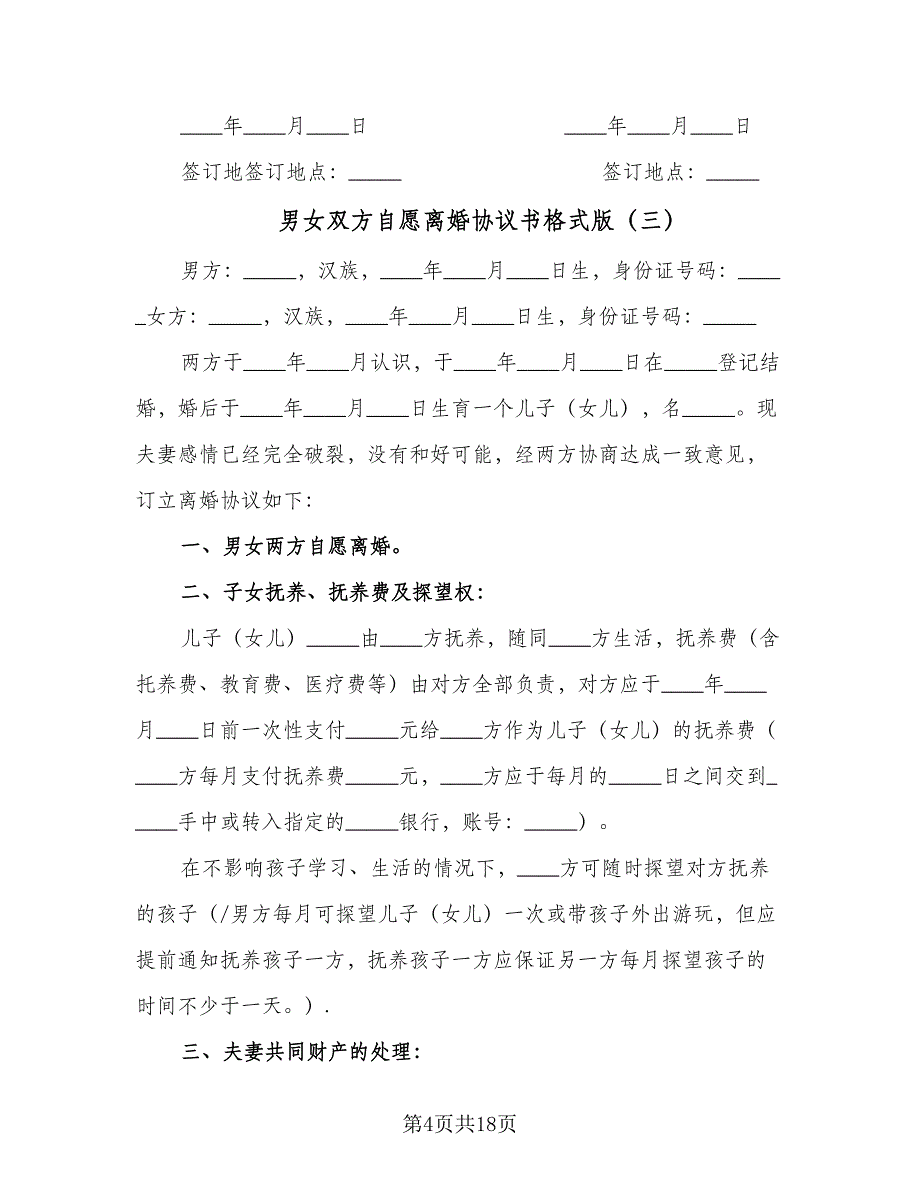 ____年____月____日 ____年____月____日
签订地签订地点：_____ 签订地点：_____
男女双方自愿离婚协议书格式版（三）
男方：_____，汉族，____年____月____日生，身份证号码：____
_女方：_____，汉族，____年____月____日生，身份证号码：_____
两方于____年____月认识，于____年____月____日在_____登记结
婚，婚后于____年____月____日生育一个儿子（女儿），名_____。现
夫妻感情已经完全破裂，没有和好可能，经两方协商达成一致意见，
订立离婚协议如下：
一、男女两方自愿离婚。
二、子女抚养、抚养费及探望权：
儿子（女儿）_____由____方抚养，随同____方生活，抚养费（含
托养费、教育费、医疗费等）由对方全部负责，对方应于____年____
月____日前一次性支付_____元给____方作为儿子（女儿）的抚养费（
____方每月支付抚养费_____元，____方应于每月的_____日之间交到_
____手中或转入指定的_____银行，账号：_____）。
在不影响孩子学习、生活的情况下，____方可随时探望对方抚养
的孩子（/男方每月可探望儿子（女儿）一次或带孩子外出游玩，但应
提前通知抚养孩子一方，抚养孩子一方应保证另一方每月探望孩子的
时间不少于一天。）.
三、夫妻共同财产的处理：
第4页共18页